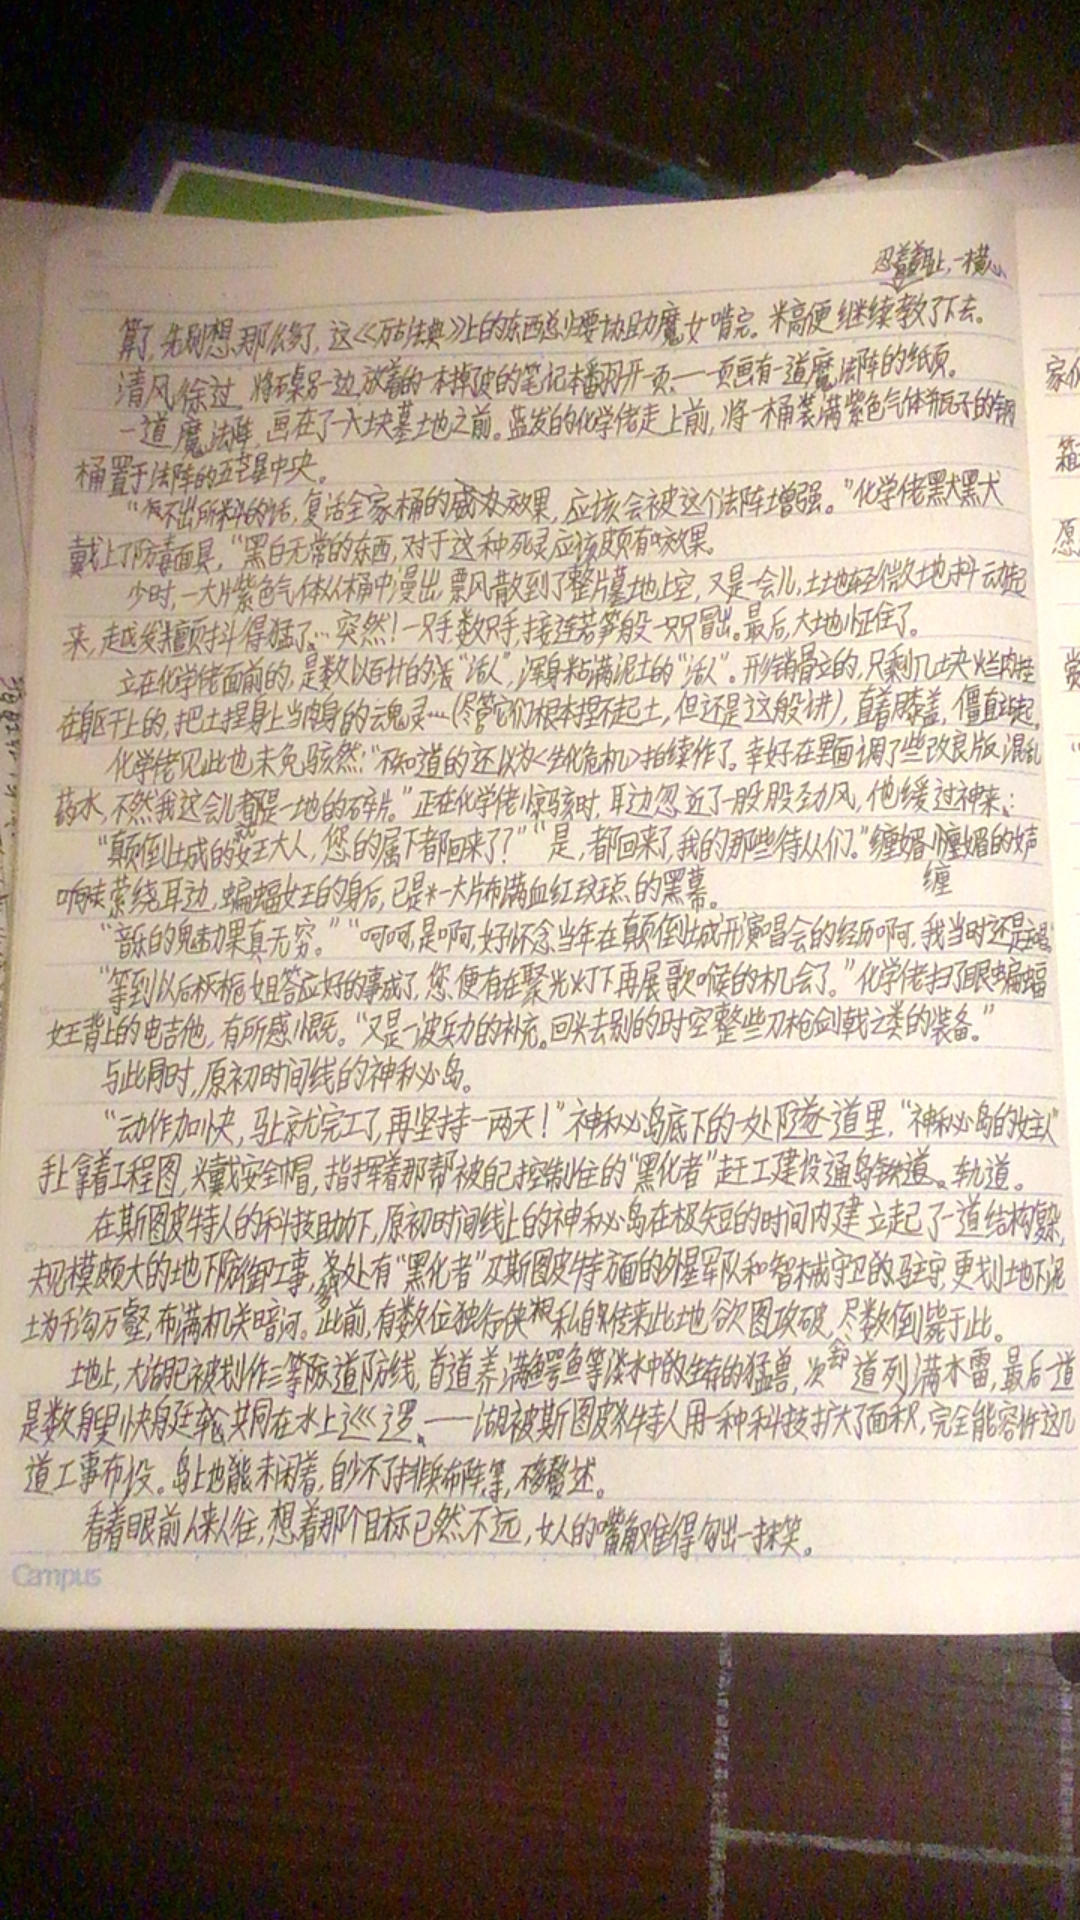 忍着羞耻,一横心
算了,先别想那么多了,这《万古法典》上的东西总归要协助魔女啃完。米高便继续教了下去。
清风徐过,将石桌另一边放着的一本掉了皮的笔记本翻开一页,一页画有一道魔法阵的纸页。
一道魔法阵,画在了一大块墓地之前。蓝发的化学佬走上前,将一桶装满紫色气体瓶子的钢
桶置于法阵的五芒星中央。
“不出所料的话,复活全家桶的效果,应该会被这个法阵增强。”化学佬默默
戴上了防毒面具,“黑白无常的东西,对于这种死灵应该颇有效果。
少时,一大片紫色气体从桶中漫出,飘风散到了整片墓地上空,又是一会儿,土地轻微地抖动起
来,越发颤抖得猛了…突然!一只手数只手,接连若笋般一只只冒出。最后,大地怔住了。
立在化学佬面前的,是数以百计的“活人”,浑身粘满泥土的“活人”。形销骨立的,只剩几块烂肉挂
在躯干上的,把土捏身上当肉身的魂灵…(尽管它们根本捏不起土,但还是这般讲),直着膝盖,僵直站起。
化学佬见此也未免骇然:“不知道的还以为《生化危机》拍续作了。幸好在里面调了些改良版混乱
药水,不然我这会儿都是一地的碎片。”正在化学佬惊骇时,耳边忽近了一股股劲风,他缓过神来:
“颠倒城的女王大人,您的属下都回来了?”“是,都回来了,我的那些侍从们。”缠媚的女声
响来萦绕耳边,蝙蝠女王的身后,已是一大片布满血红斑点的黑幕。
缠
“音乐的魅力果真无穷。”“呵呵,是啊,好怀念当年在颠倒城开演唱会的经历啊,我当时还是主唱。”
“等到以后栀姐答应好的事成了,您便有在聚光灯下再展歌喉的机会了。”化学佬扫了眼蝙蝠
女王背上的电吉他,有所感慨。“又是一波兵力的补充。回头去别的时空整些刀枪剑戟之类的装备。”
与此同时,原初时间线的神秘岛。
“动作加快,马上就完工了,再坚持一两天!”神秘岛底下的一处隧道里,“神秘岛的女主人”
手上拿着工程图,头戴安全帽,指挥着那帮被自己控制住的“黑化者”赶工建设通岛铁道。轨道。
在斯图皮特人的科技助力下,原初时间线上的神秘岛在极短的时间内建立起了一道结构复杂,
规模颇大的地下防御工事,多处有“黑化者”及斯图皮特方面的外星军队和智械守卫的驻守,更划土地下泥
土为千沟万壑,布满机关暗河。此前,有数位独行侠私自传来此地欲图攻破,尽数倒毙于此。
地上,大湖已被划作三道防线,首道养满鳄鱼等淡水中生存的猛兽,次道列满水雷,最后一道
是数艘快艇共同在水上巡逻。——湖被斯图皮特人用一种科技扩大了面积,完全能容许这几
道工事布设。岛上也未闲着,自少不了排兵布阵等,不移赘述。
看着眼前人来人往,想着那个目标已然不远,女人的嘴角难得勾出一抹笑。
Campus